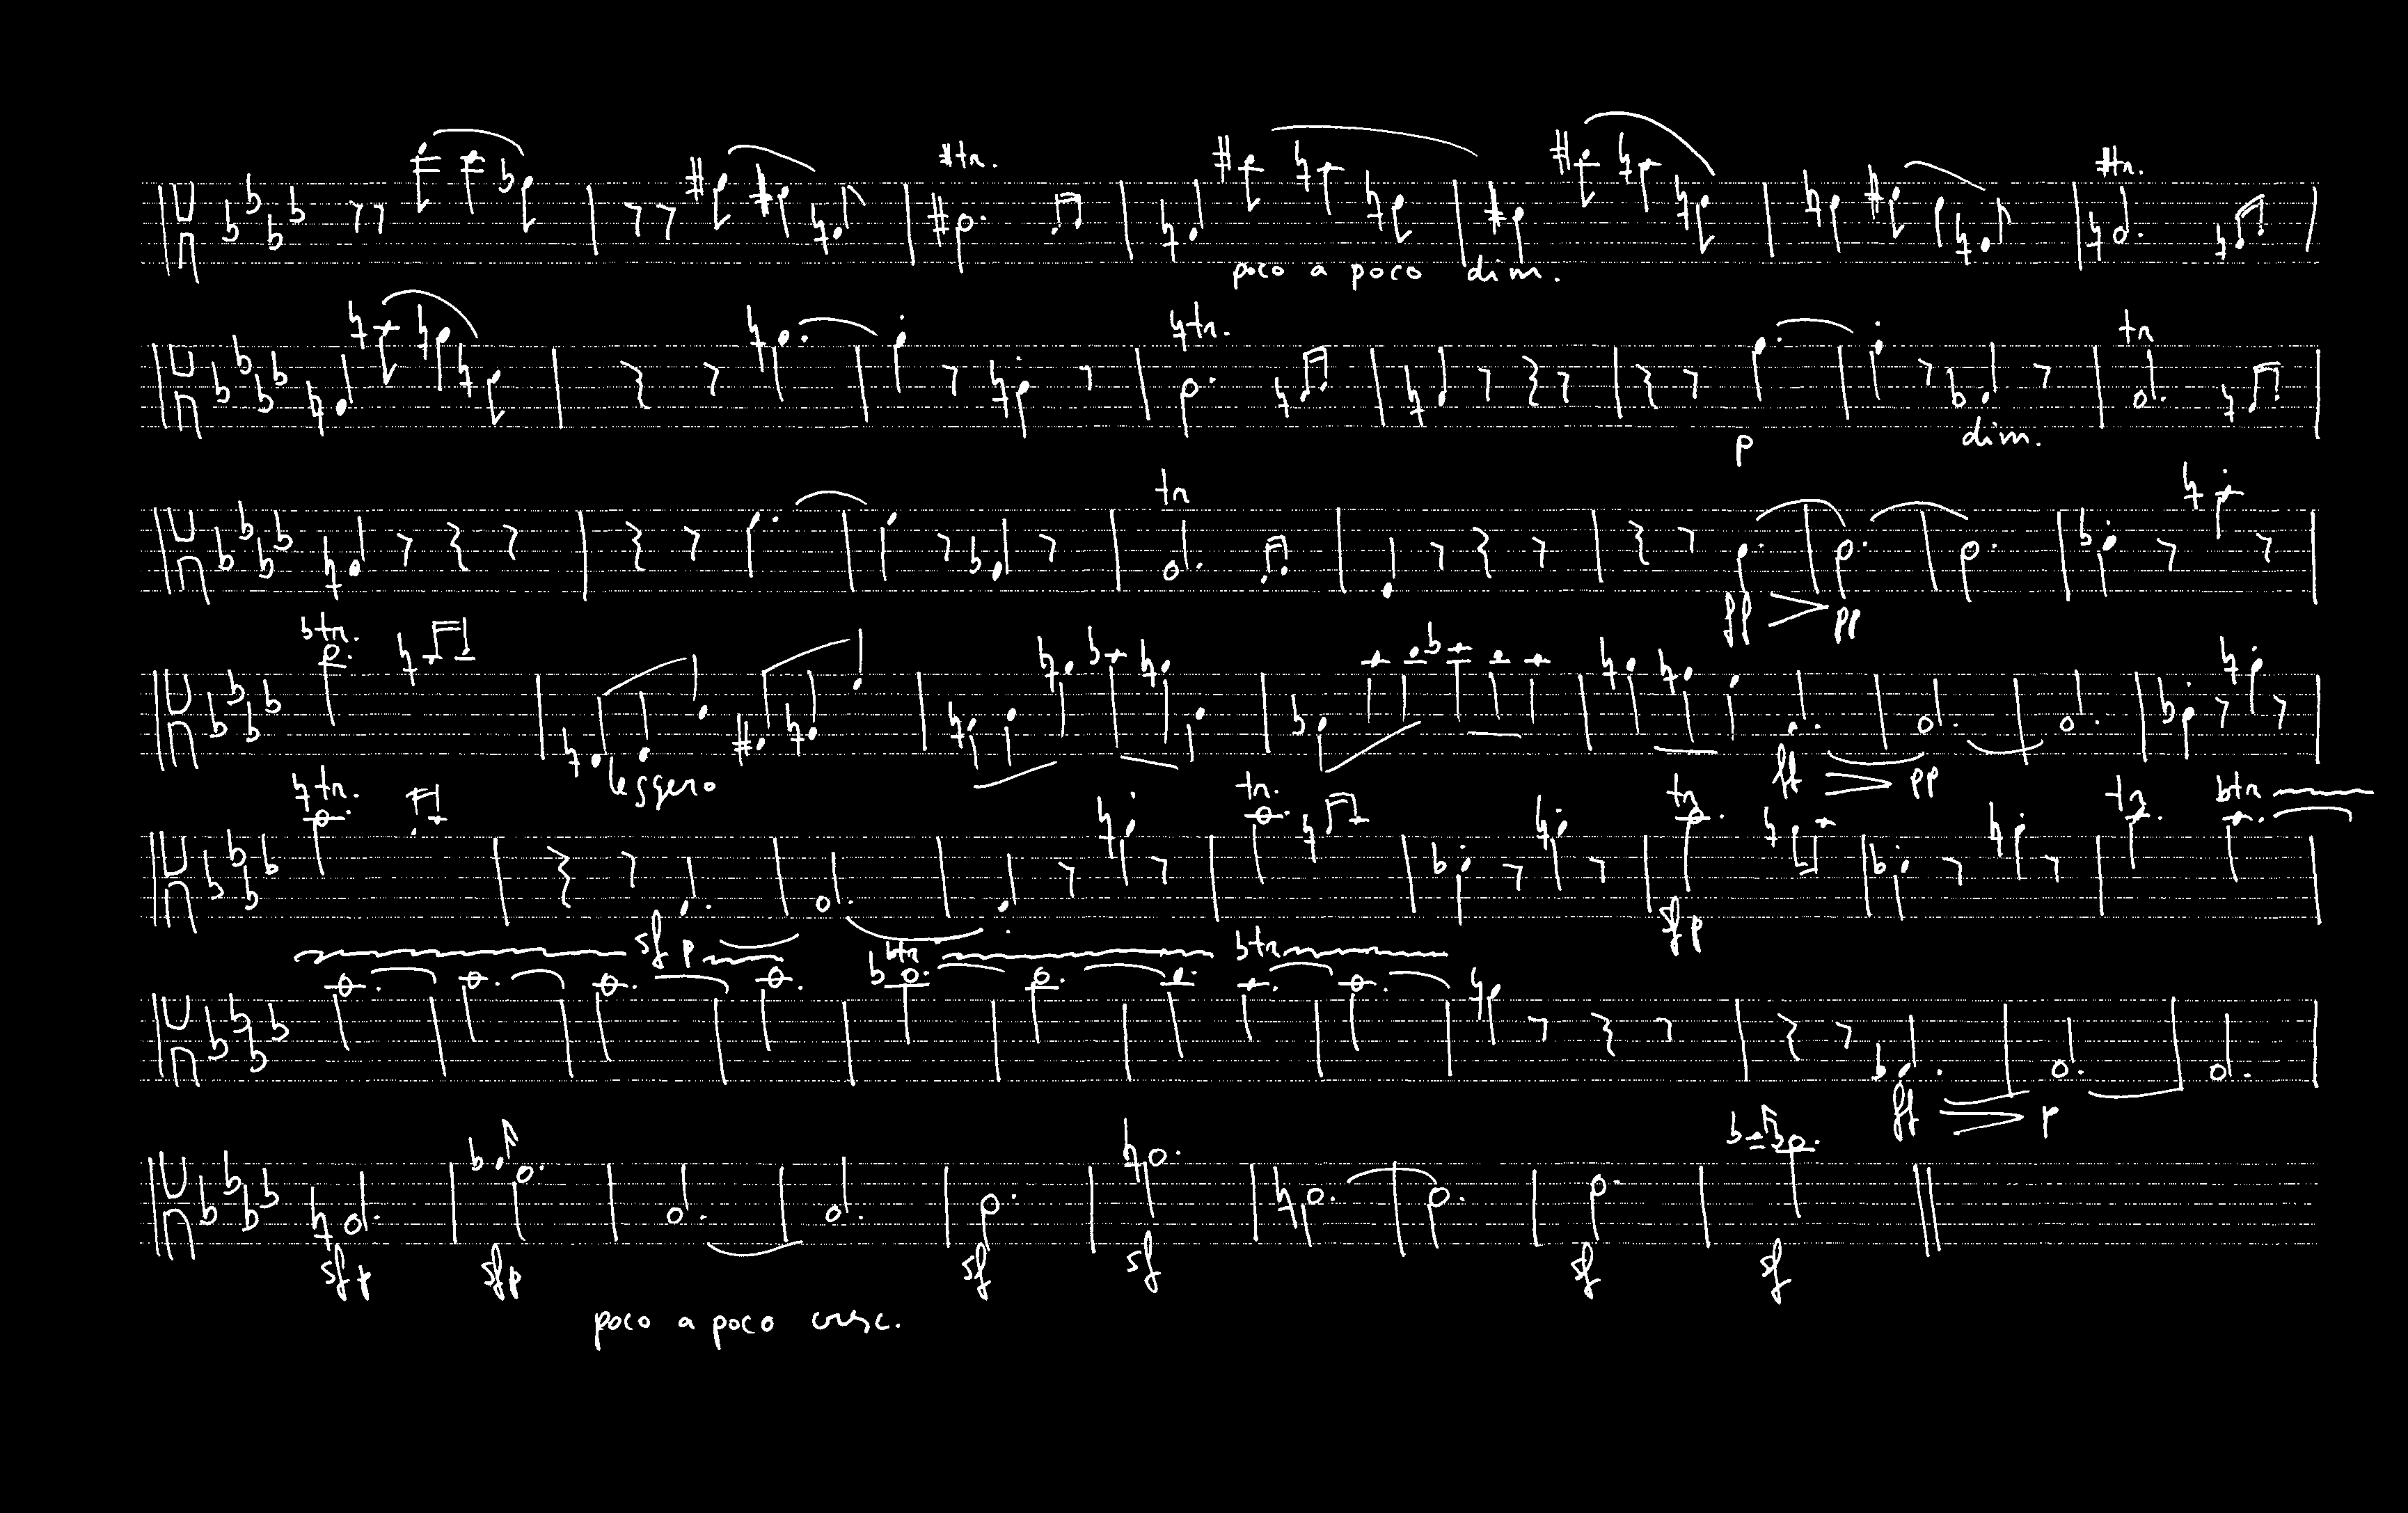 tr. tr.
poco a poco dim.
tr. tr
p dim.
tr
fp pp
tr.
leggero ff pp
tr. tr. tr tr. tr
sfp
sf p tr tr
ff p
sfp sfp sf sf sf sf
poco a poco cresc.